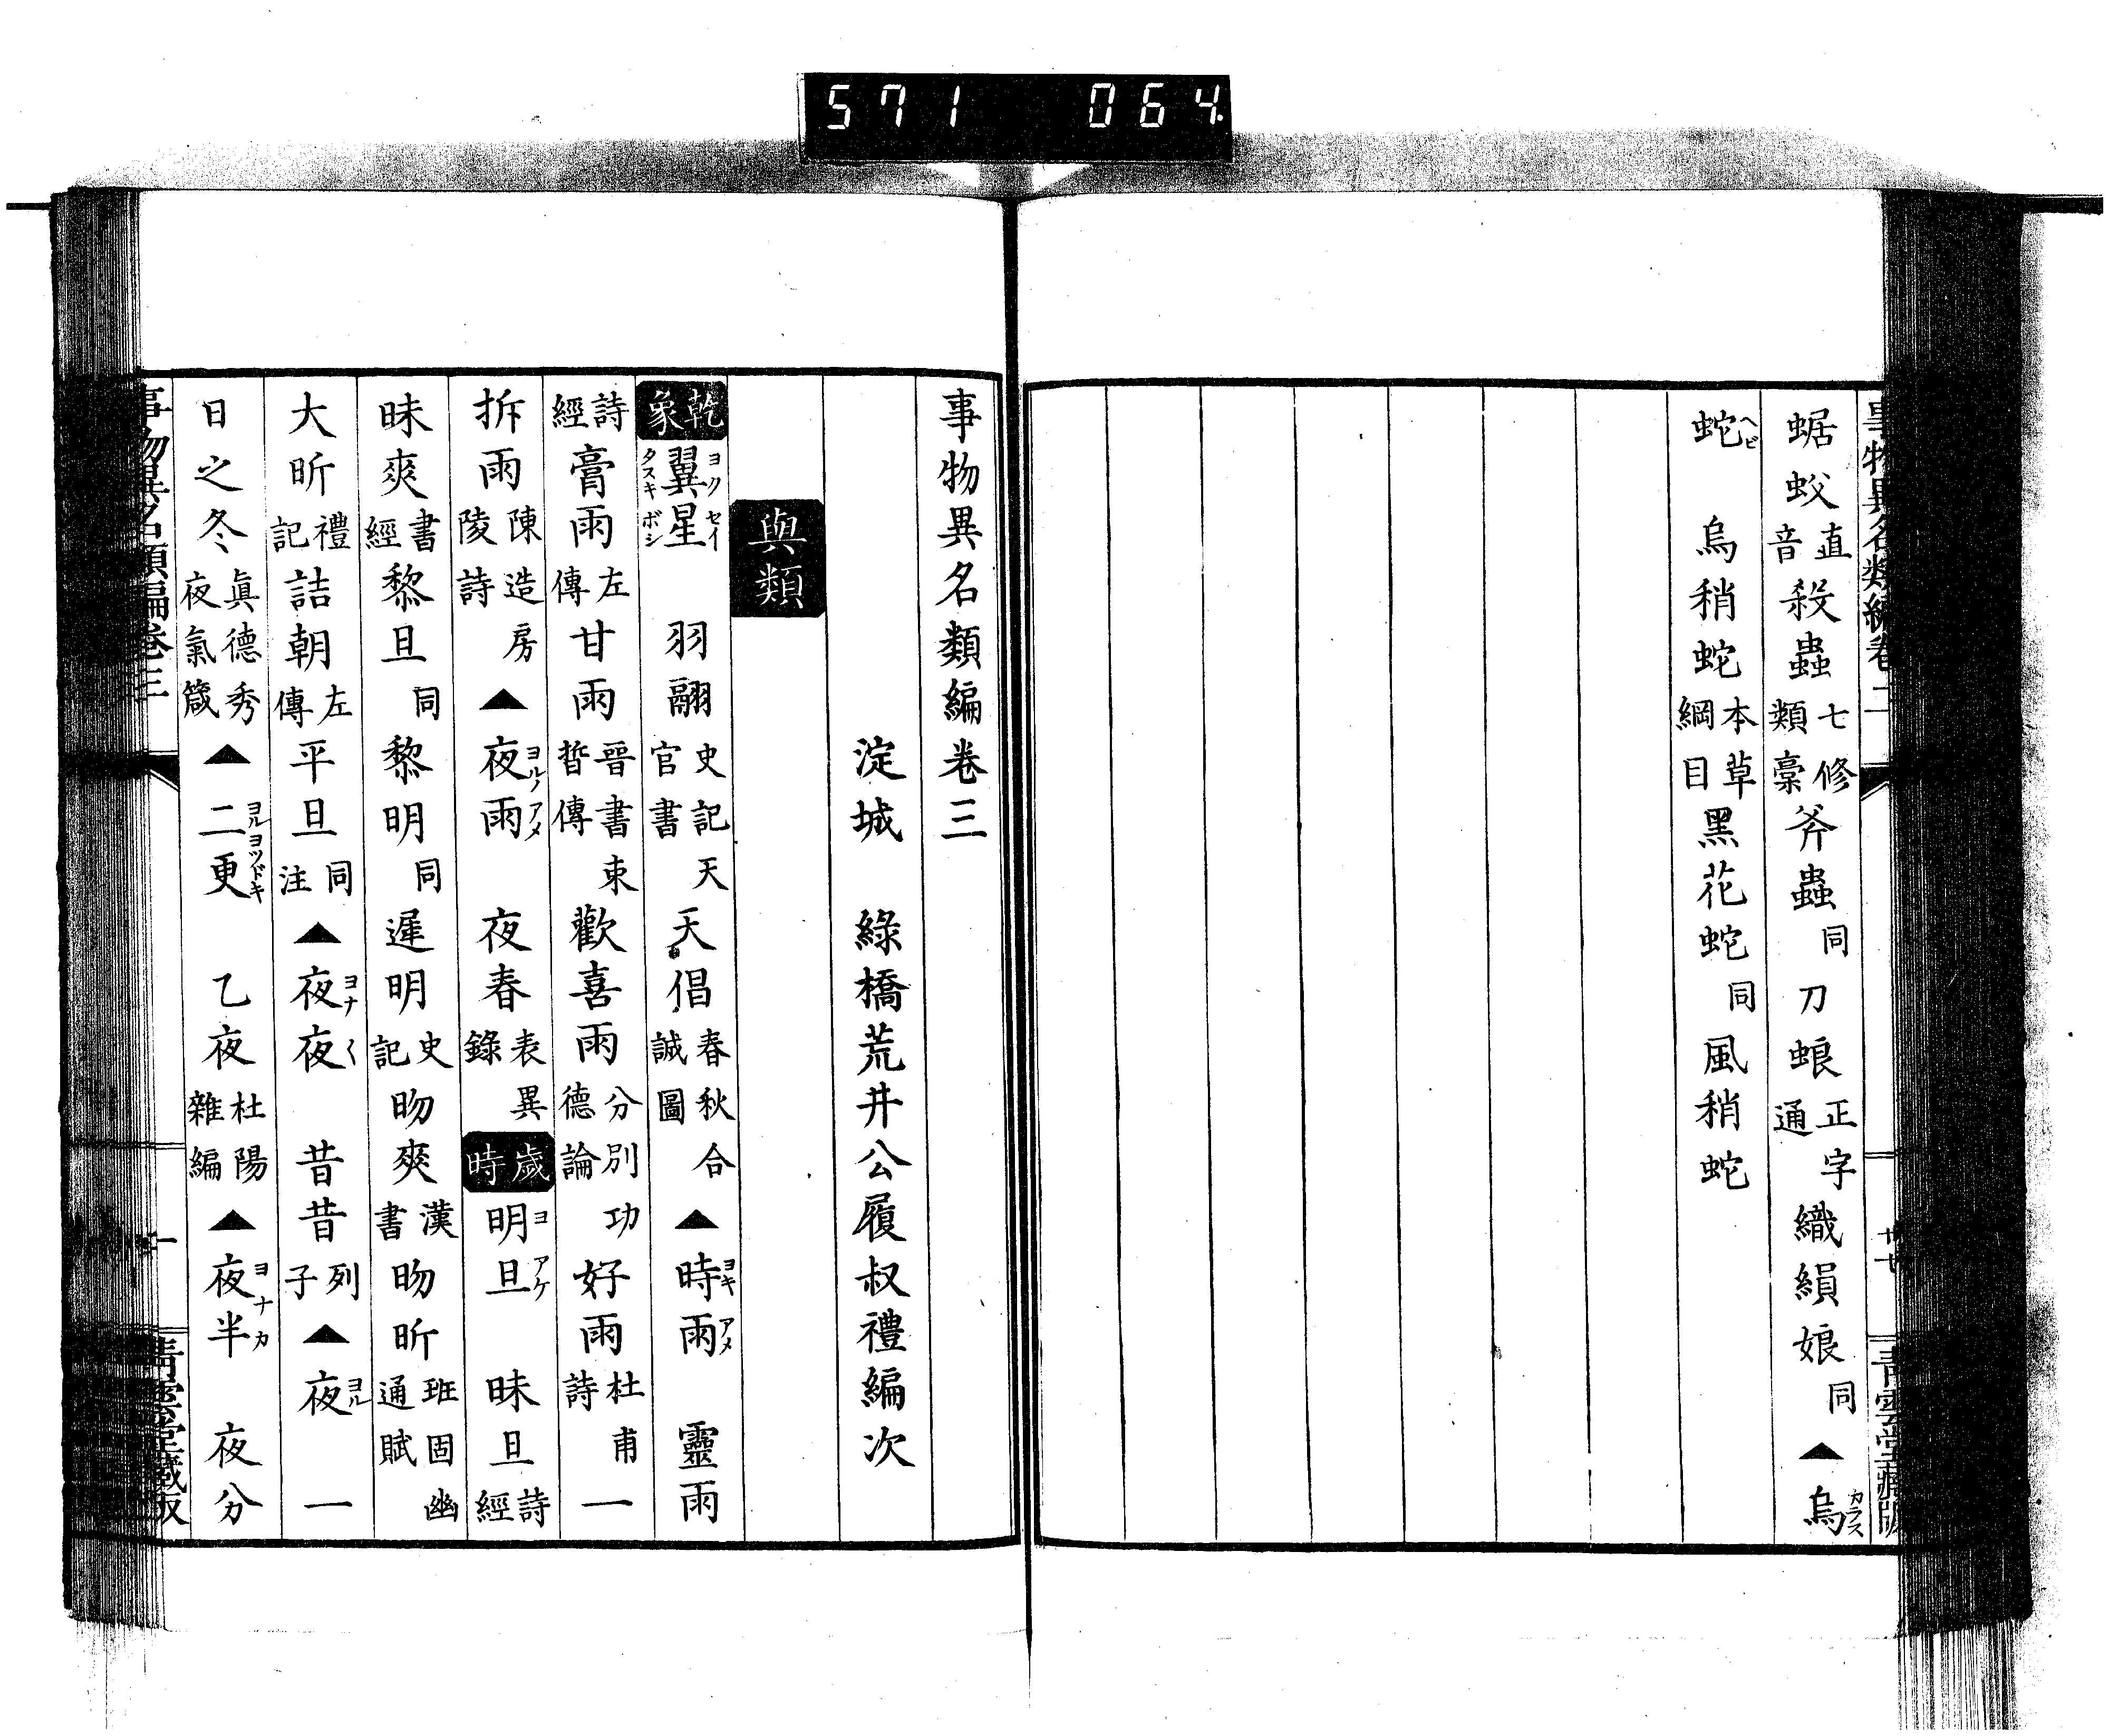 571 064
事物異名類編卷二
蜛蚥直音殺蟲七修類稾斧蟲同刀蜋正字通織絹娘同▲烏カラス
蛇ヘビ 烏稍蛇本草綱目黑花蛇同風稍蛇
廿七
青雲堂藏版
事物異名類編卷三
淀城 綠橋荒井公履叔禮編次
與類
乾象 翼星ヨクセイ タスキボシ 羽翮史記天官書天倡春秋合誠圖▲時雨ヨキアメ 靈雨
詩經膏雨左傳甘雨晉書束晳傳歡喜雨分別功德論好雨杜甫詩一
拆雨陳造房陵詩▲夜雨ヨルノアメ 夜春表異錄 歲時 明旦ヨアケ 昧旦詩經
昧爽書經黎旦同黎明同遲明史記昒爽漢書昒昕班固幽通賦
大昕禮記詰朝左傳平旦同注▲夜夜ヨナ〱 昔昔列子▲夜ヨル 一
日之冬眞德秀夜氣箴▲二更ヨルヨツドキ 乙夜杜陽雜編▲夜半ヨナカ 夜分
事物異名類編卷三
一
青雲堂藏版